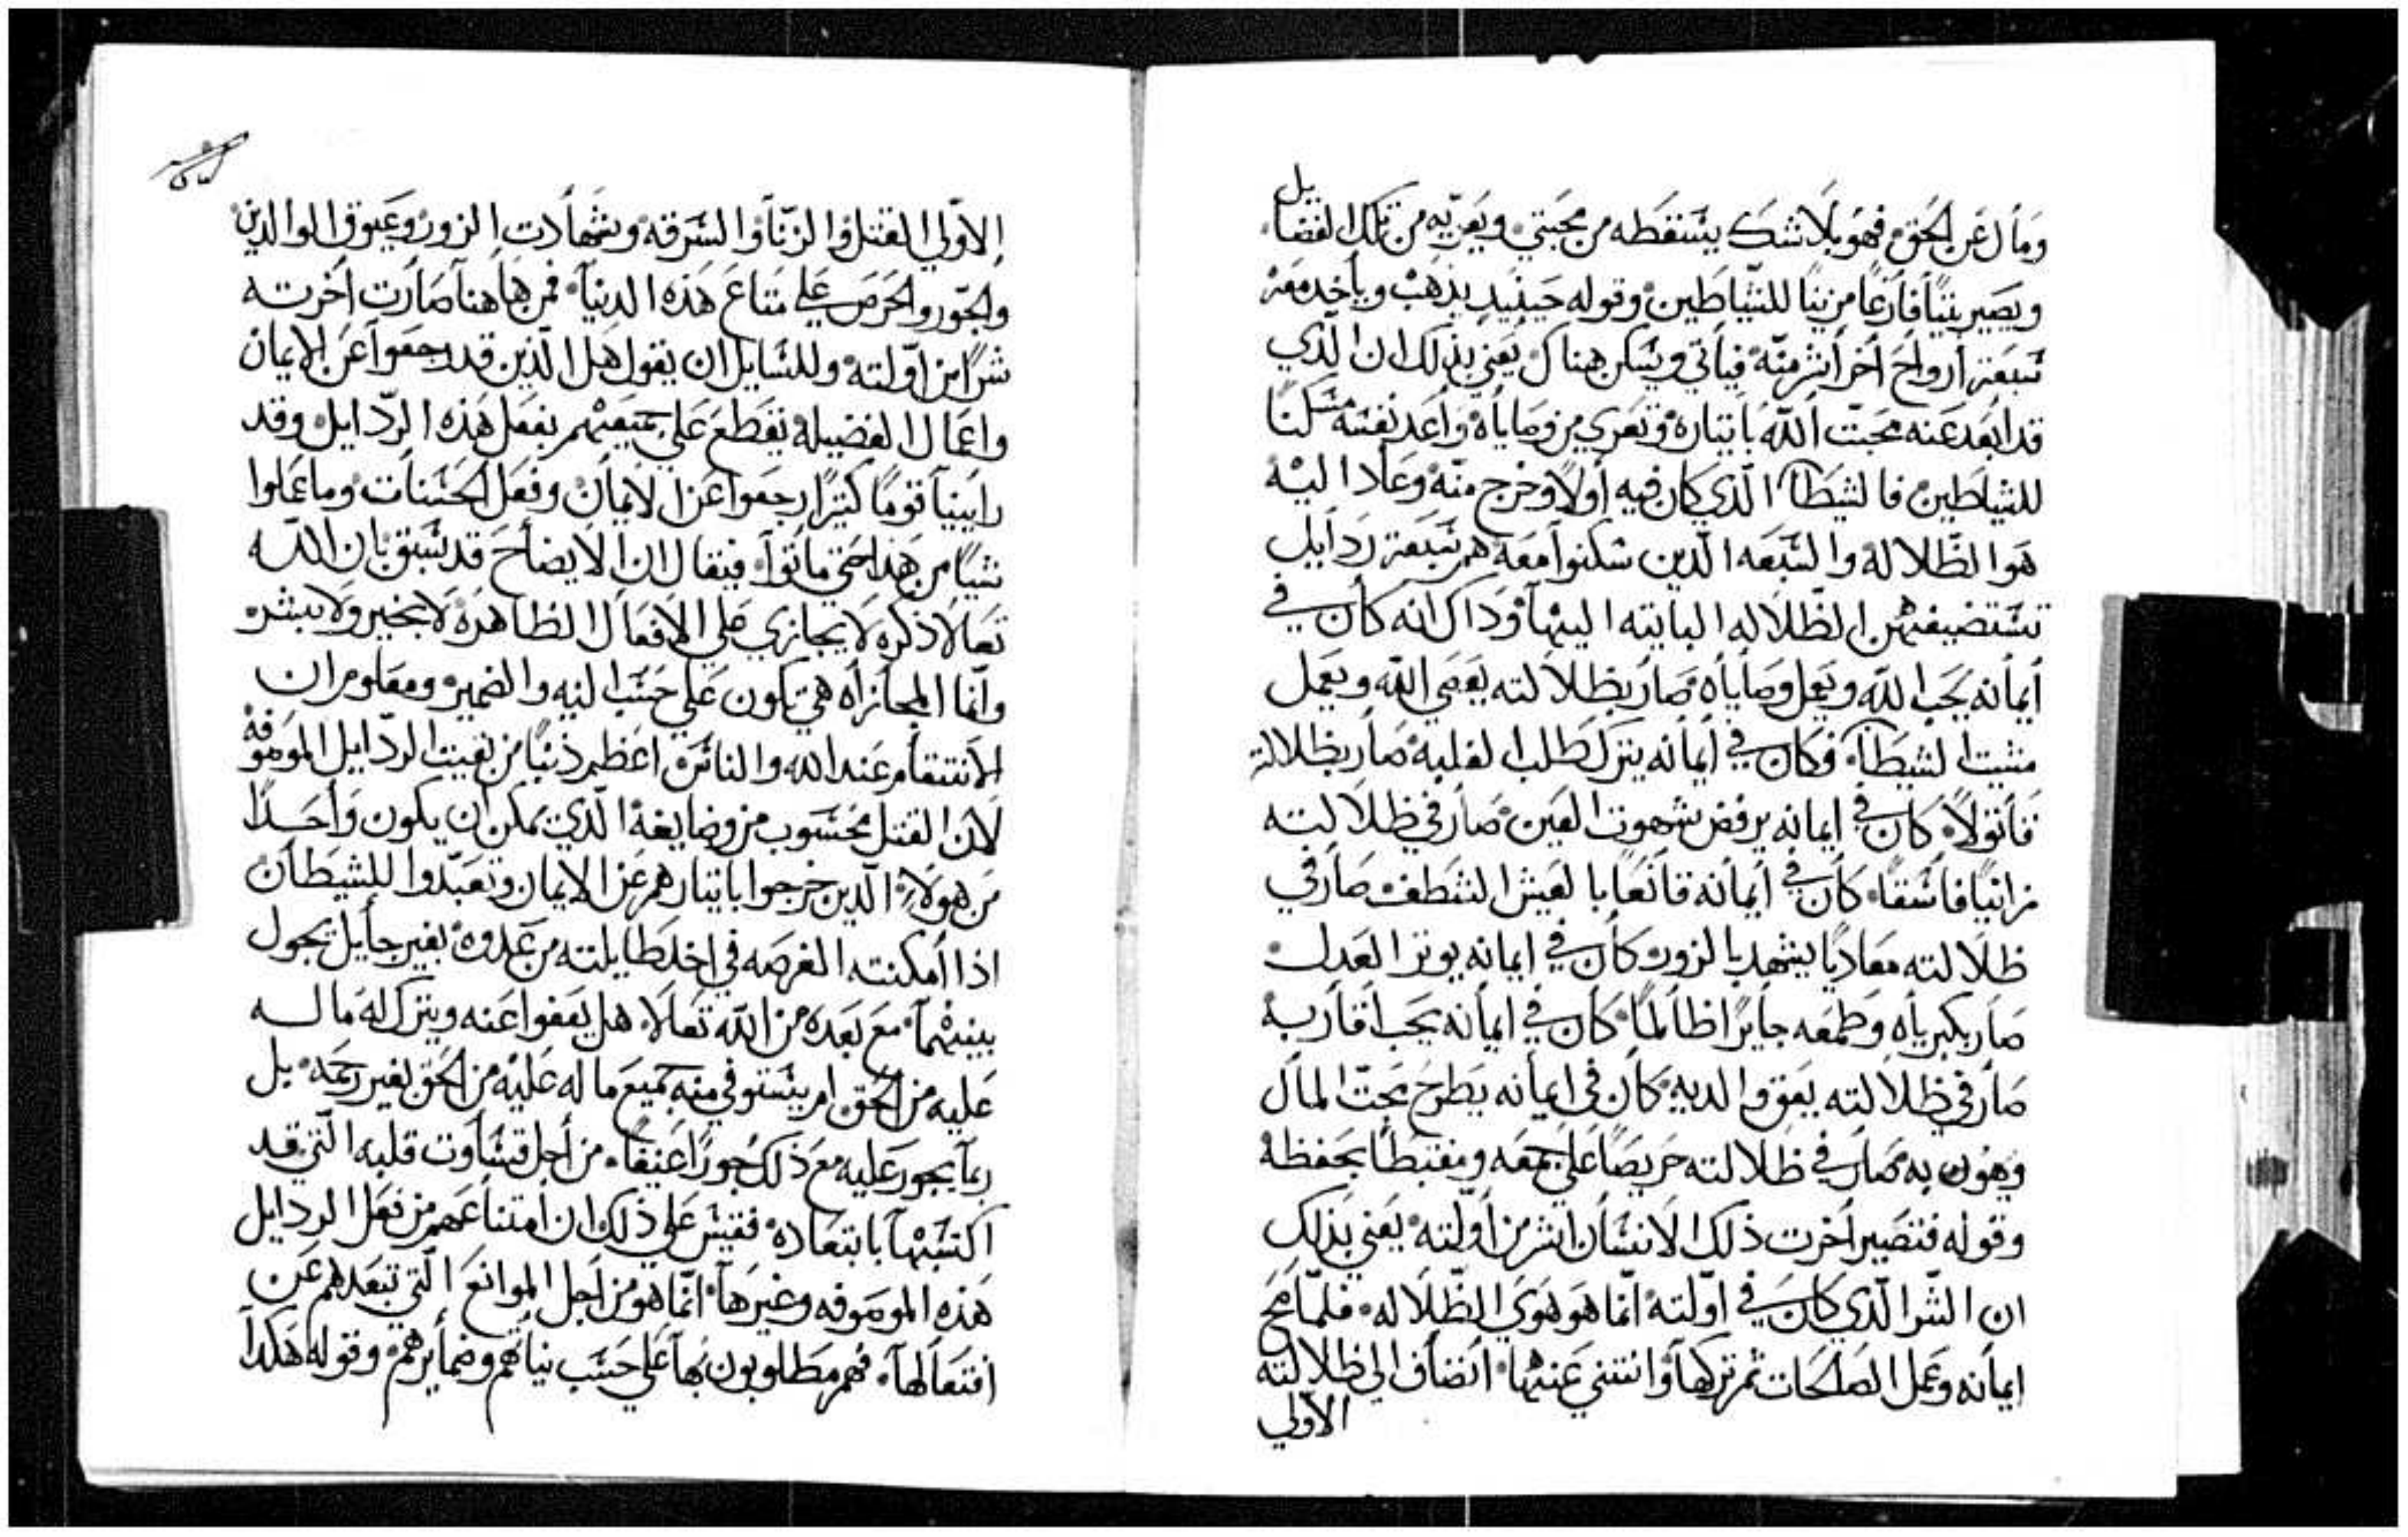 ومال عن الحق فهو بلا شك يسقطه من محبتي ويعريه من تلك الفضايل
ويصير بيتًا فارغًا مزينًا للشياطين وقوله حينيد يذهب وياخد معه
سبعة أرواح أخر أشر منه فياتي ويسكن هناك يعني بذلك ان الذي
قد ابعد عنه محبت الله باتياره وتعري من وصاياه وأعد نفسه مسكنًا
للشياطين فالشيطان الذي كان فيه أولاً وخرج منه وعاد اليه
هو الظلاله والسبعه الدين سكنوا معه هم سبعة ردايل
تستضيفهن الظلاله الباتيه اليها وداك انه كان في
أيمانه يحب الله ويعمل وصاياه صار بظلالته يعصي الله ويعمل
مشيت الشيطان وكان في أيمانه يترك طلب الغلبه صار بظلالته
قاتولاً كان في ايمانه يرفض شهوت العين صار في ظلالته
زانيًا فاسقًا كان في أيمانه قانعًا بالعيش الشطف صار في
ظلالته معاديًا يشهد بالزور وكان في ايمانه يوتر العدل
صار بكبرياه وطمعه جايرًا ظالمًا كان في ايمانه يحب أقاربه
صار في ظلالته يعق والديه كان في ايمانه يطرح محبت المال
وهون به صار في ظلالته حريصًا على جمعه ومغتبطًا بحفظه
وقوله فتصير أخرت ذلك الانسان أشر من أولته يعني بذلك
ان الشر الذي كان في أولته انما هو هوي الظلاله فلما صح
ايمانه وعمل الصالحات ثم تركها وانتني عنها انضاف الي ظلالته
الاولي
الاولي القتل والزنا والسرقه وشهادت الزور وعقوق الوالدين
والجور والحرص على متاع هذه الدنيا فمن هاهنا صارت أخرته
شرًا من اولته وللسايل ان يقول هل الذين قد رجعوا عن الايمان
واعمال الفضيله تقطع على جميعهم بفعل هذه الردايل وقد
راينا قومًا كتيرًا رجعوا عن الايمان وفعل الحسنات وما عملوا
شيًا من هذا حتي ماتوا فيقال ان الايضاح قد سبق بان الله
تعالا ذكره لا يجازي على الافعال الظاهره لا بخير ولا بشر
وانما المجازاه هي تكون على حسب النيه والضمير ومعلوم ان
الانتقام عند الله والناس اعظم ذنبًا من بقيت الردايل الموصوفه
لان القتل محسوب من
من هولاء الدين خرجوا باتيارهم عن الايمان وتعبدوا للشيطان
اذا أمكنته الفرصه في اخد طايلته من عدوه بغير حايل يحول
بينهما مع بعده من الله تعالا هل يعفوا عنه ويترك له ما له
عليه من الحق ام يستوفي منه جميع ما له عليه من الحق بغير رحمه بل
ربما يجور عليه مع ذلك جورًا عنيفًا من أجل قساوت قلبه التي قد
اكتسبها بابتعاده فقيس على ذلك ان امتناعهم من فعل الردايل
هذه الموصوفه وغيرها انما هو من اجل الموانع التي تبعدهم عن
افتعالها فهم مطلوبون بها على حسب نياتهم وضمايرهم وقوله هكدا